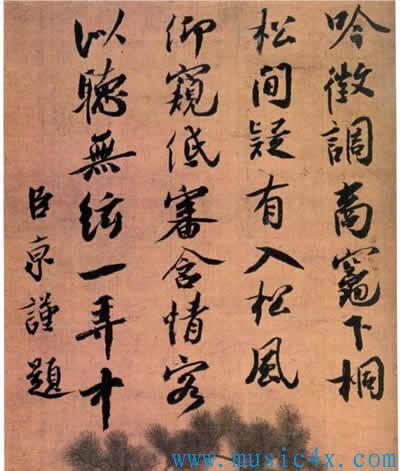 吟徵調商竈下桐
松間疑有入松風
仰窺低審含情客
以聽無絃一弄中
臣京謹題
www.music4x.com